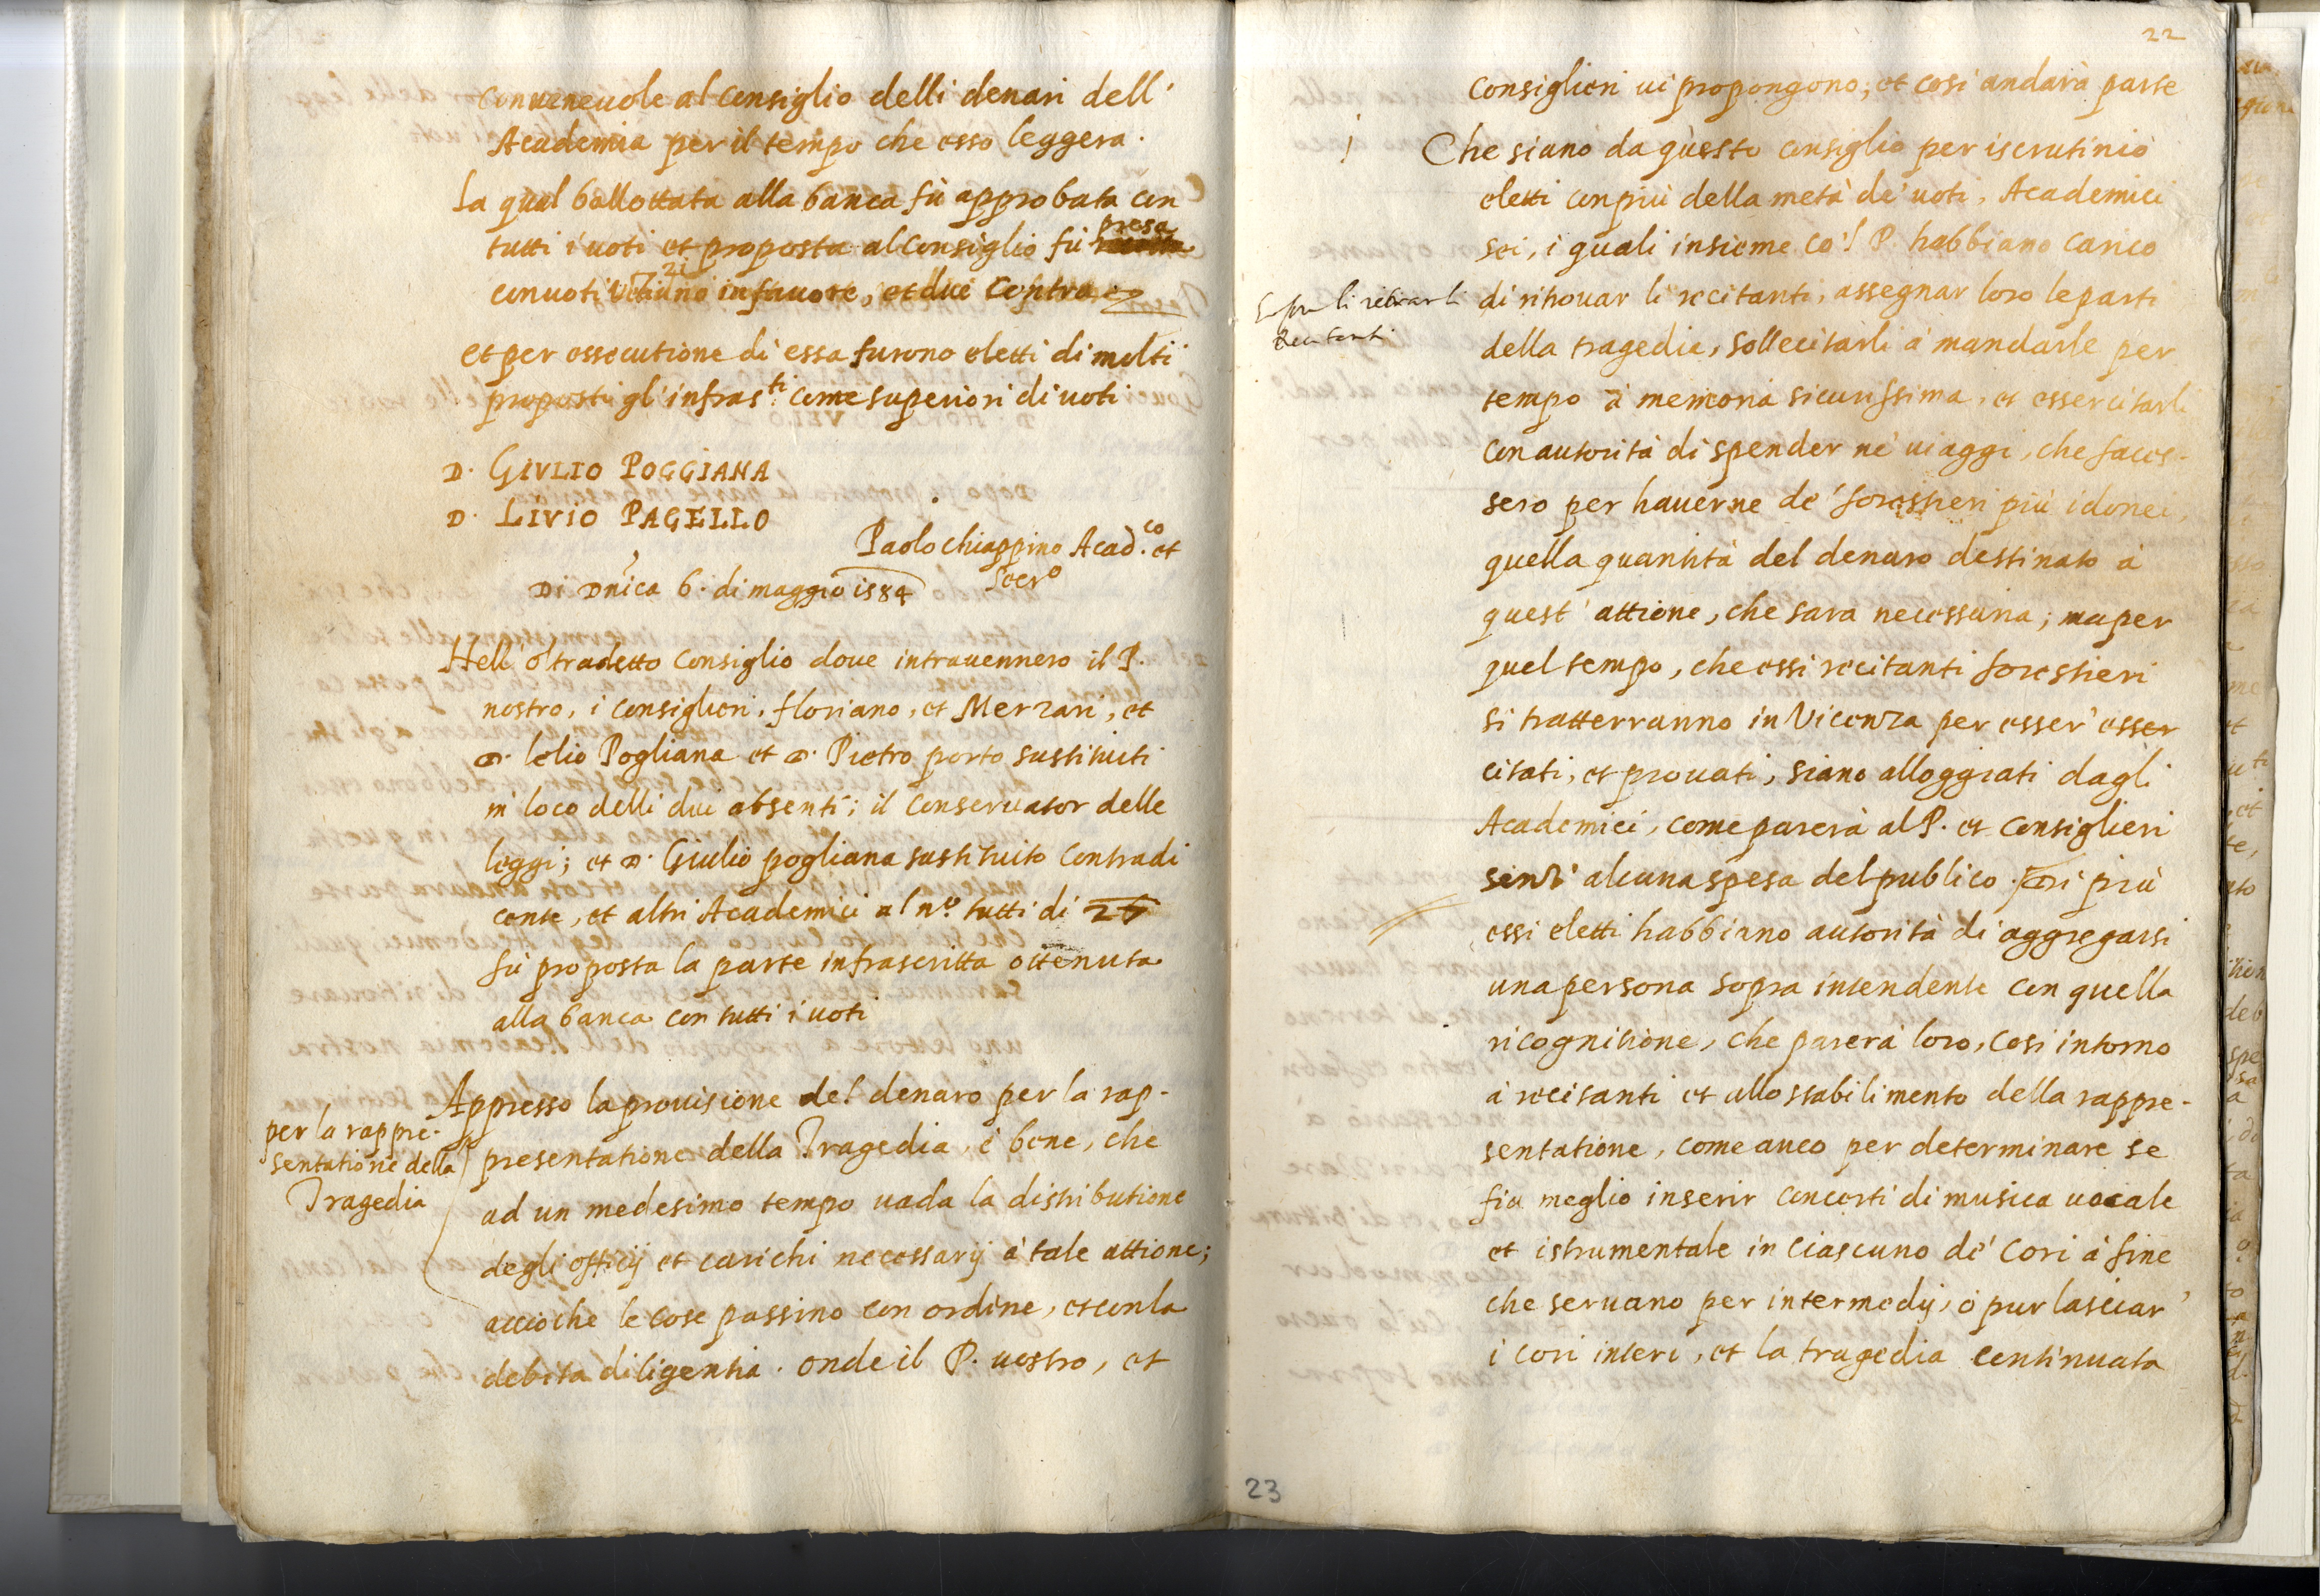 conueneuole al Consiglio delli denari dell'
Academia per il tempo che esso leggera.
La qual ballottata alla banca fù approbata con
tutti i uoti et proposta al Consiglio fù presa
con uoti 21 in fauore, et dui contra
et per essecutione di essa furono eletti di molti
proposti gl'infras.ti come superiori di uoti
D. GIVLIO POGGIANA
D. LIVIO PAGELLO
Paolo Chiappino Acad.co et
Secr.o
Di Dnica 6. di maggio 1584
Nell'oltradetto Consiglio doue intrauennero il P.
nostro, i Consiglieri, floriano, et Merzari, et
D. lelio Pogliana et D. Pietro porto sustituiti
in loco delli dui absenti; il Conseruator delle
leggi; et D. Giulio pogliana sustituito Contradi
cente, et altri Academici al n.o tutti di 26
fù proposta la parte infrascritta ottenuta
alla banca con tutti i uoti
Appresso la prouisione del denaro per la rap-
per la rappre-
sentatione della
Tragedia
presentatione della Tragedia, è bene, che
ad un medesimo tempo uada la distributione
degli officij et carichi necessarij à tale attione;
acciò che le cose passino con ordine, et con la
debita diligentia. onde il P. uostro, et
22
Consiglieri ui propongono; et così andarà parte
Che siano da questo consiglio per iscrutinio
eletti con più della metà de' uoti, Academici
sei, i quali insieme co'l P. habbiano carico
di ritrouar li recitanti, assegnar loro le parti
Sopra li
recitanti
della tragedia, sollecitarli à mandarle per
tempo à memoria sicurissima, et essercitarli
con autorità di spender ne' uiaggi, che faces-
sero per hauerne de' forestieri più idonei,
quella quantità del denaro destinato à
quest'attione, che sara necessaria; ma per
quel tempo, che essi recitanti forestieri
si tratterranno in Vicenza per esser' esser
citati, et prouati, siano alloggiati dagli
Academici, come parerà al P. et Consiglieri
senz' alcuna spesa del publico. Di più
essi eletti habbiano autorità di aggregarsi
una persona sopra intendente con quella
ricognitione, che parerà loro, così intorno
à recitanti et allo stabilimento della rappre-
sentatione, come anco per determinare se
fia meglio inserir concerti di musica uocale
et istrumentale in ciascuno de' Cori à fine
che seruano per intermedij, ò pur lasciar'
i cori interi, et la tragedia continuata
23